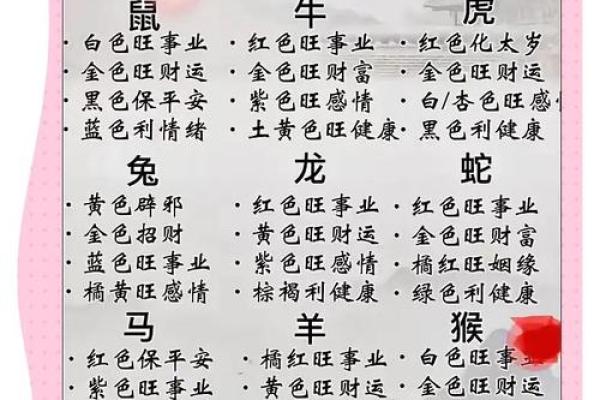 鼠
·白色旺事业
·金色旺财运
·黑色保平安
·蓝色利情绪
牛
·红色旺事业
·金色旺财富
·紫色旺感情
·土黄色旺健康
虎
·红色化太岁
·金色旺财运
·白/杏色旺感情
·黑色利健康
兔
·黄色辟邪
·金色招财
·蓝色旺事业
·橘黄旺感情
龙
·红色旺事业
·黄色旺财运
·紫色旺感情
·棕褐利健康
蛇
·红色旺事业
·金色旺财富
·橘红旺姻缘
·绿色利健康
马
·红色保平安
·紫色旺事业
羊
·橘红旺事业
·黄色旺财运
猴
·白色旺事业
·金色旺财运